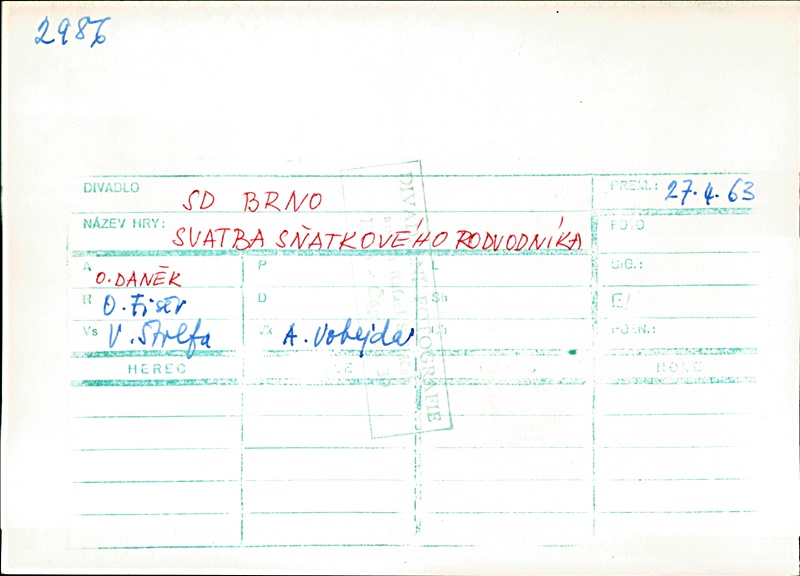 2986
DIVADLO SD BRNO PREM.: 27.4.63
NÁZEV HRY: SVATBA SŇATKOVÉHO PODVODNÍKA FOTO
A O. DANĚK P L SIG.:
R O. Fišer D Sh E/
Vs V. Štolfa Vk A. Vobejda
HEREC ROLE